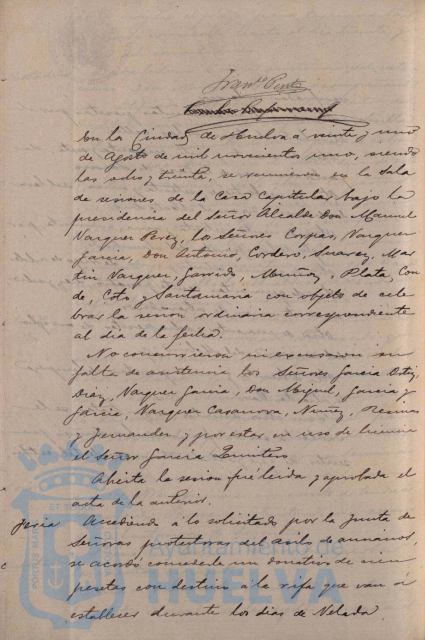 En la Ciudad de Huelva á veinte y uno
de Agosto de mil novecientos uno, siendo
las ocho y treinta, se reunieron en la Sala
de sesiones de la Casa Capitular bajo la
presidencia del Señor Alcalde Don Manuel
Vazquez Perez, los Señores Corpas, Vazquez
Garcia, Don Antonio, Cordero, Suarez, Mar
tin Vazquez, Garrido, Muñoz, Plata, Con
de, Coto y Santamaria con objeto de cele
brar la sesion ordinaria correspondiente
al dia de la fecha.
No concurrieron ni excusaron su
falta de asistencia los Señores Garcia Ortiz,
Diaz, Vazquez Garcia, Don Miguel, Garcia y
Garcia, Vazquez Casanova, Nuñez,
y Fernandez y por estar en uso de licencia
el Señor Garcia Quintero
Abierta la sesion fué leida y aprobada el
acta de la anterior.
Feria Accediendo á lo solicitado por la Junta de
Señoras protectoras del asilo de ancianos,
se acordó concederle un donativo de cien
pesetas con destino á la rifa que van á
establecer durante los dias de Velada
Ayuntamiento de
HUELVA